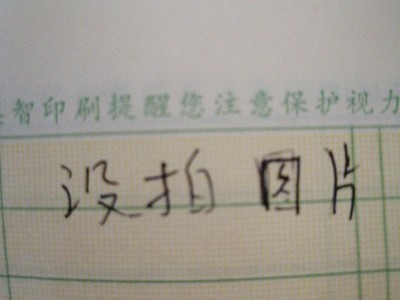 智印刷提醒您注意保护视力
没拍图片